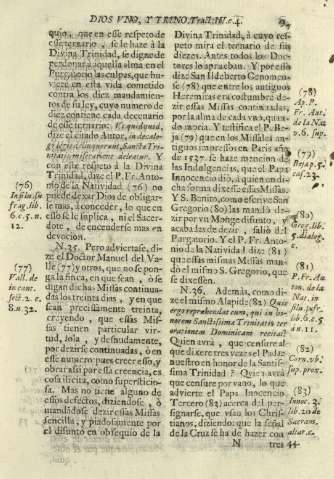 DIOS VNO, Y TRINO. Tract. III. c. 4. 9
quio, que en esse respeto de
esse ternario, se le haze à la
Divina Trinidad, se digne de
perdonar à aquella alma en el
Purgatorio las culpas, que huviere
en esta vida cometido
contra los diez mandamientos
de su ley, cuyo numero de
diez contiene cada decenario
de esse ternario: Et quidquid,
dize el citado Autor, in decalogo
legis delinquerunt, Sanctæ Trinitatis
miseratione deleatur. Y
con este respeto à la Divina
Trinidad, dize el P. Fr. Antonio
de la Natividad (76) no
puede dexar Dios de obligarle
mas, à conceder, lo que en
esse respeto se le implica el
conocerle, ni el Sacerdote,
de encenderse mas en
devocion.
(76)
frag. lib.
6. c. 5. n.
12.
N. 35. Pero adviertase, dize
el Doctor Manuel del Valle
(77) y otros, que no se ponga
la fuerça, en que sean, ò se
digan dichas Missas continuadas
los treinta dias, y en que
sean precisamente treinta,
creyendo, que essas Missas
tienen particular virtud,
sola, y desnudamente,
por dezirse continuadas, ò en
esse numero; pues creer esso, y
obrar assi por essa creencia, es
cosa ilicita, como supersticiosa.
Mas no tiene alguno de
essos defectos, diziendose, ò
mandandose dezir essas Missas
sencilla, y piadosamente por
el difunto en obsequio de la
(77)
Vall. de
in cant.
sect. 2. c.
8. n 32.
Divina Trinidad, à cuyo respeto
mira el ternario de sus
diezes. Antes todos los Doctores
lo aprueban. Y por esso
dize San Ildeberto Genomense
(78) que entre los antiguos
Heremitas era costumbre dezir
essas Missas continuadas,
por la alma de cada vno, quando
moria. Y testifica el P. Beja
(79) que en los Missales antiguos
impressos en Paris año
de 1527. se haze mencion de
las Indulgencias, que el Papa
Innocencio dió, à quien en dicha
forma dixesse essas Missas.
Y S. Bonito, como escrive San
Gregorio (80) las mandó dezir
por vn Monge difunto, y acabadas
las de dezir, salió del
Purgatorio. Y el P. Fr. Antonio
de la Natividad dize (81)
que essas mismas Missas mandó
el mismo S. Gregorio, que
se dixessen.
(78)
Ap. P.
Fr. Ant.
de la Nat.
v. 6. sup.
(79)
Beja, to.
cas. 23.
(80)
Greg. lib.
5. dialog.
(81)
P. Fr. Anton.
de la
Nat. in
sua fragm.
lib. 6. c. 5.
n. 12.
N. 36. Además, como dize
el mismo Alapide (82) Quis
ergo reprehendat eum, qui in honorem
Sanctissimæ Trinitatis ter
orationem Dominicam recitat?
Quien avrà, que censure al
que dixere tres vezes el Padre
nuestro en honor de la Santissima
Trinidad? Quien avrà
que censure por vano, lo que
advierte el Papa Innocencio
Tercero (83) acerca del persignarse,
que vsan los Christianos,
diziendo, que la señal
de la Cruz se ha de hazer con
(82)
Corn. vb.
sup. prox.
(83)
Innoc. 3.
lib. 2. de
Sacram.
altar. c.
44
N tres